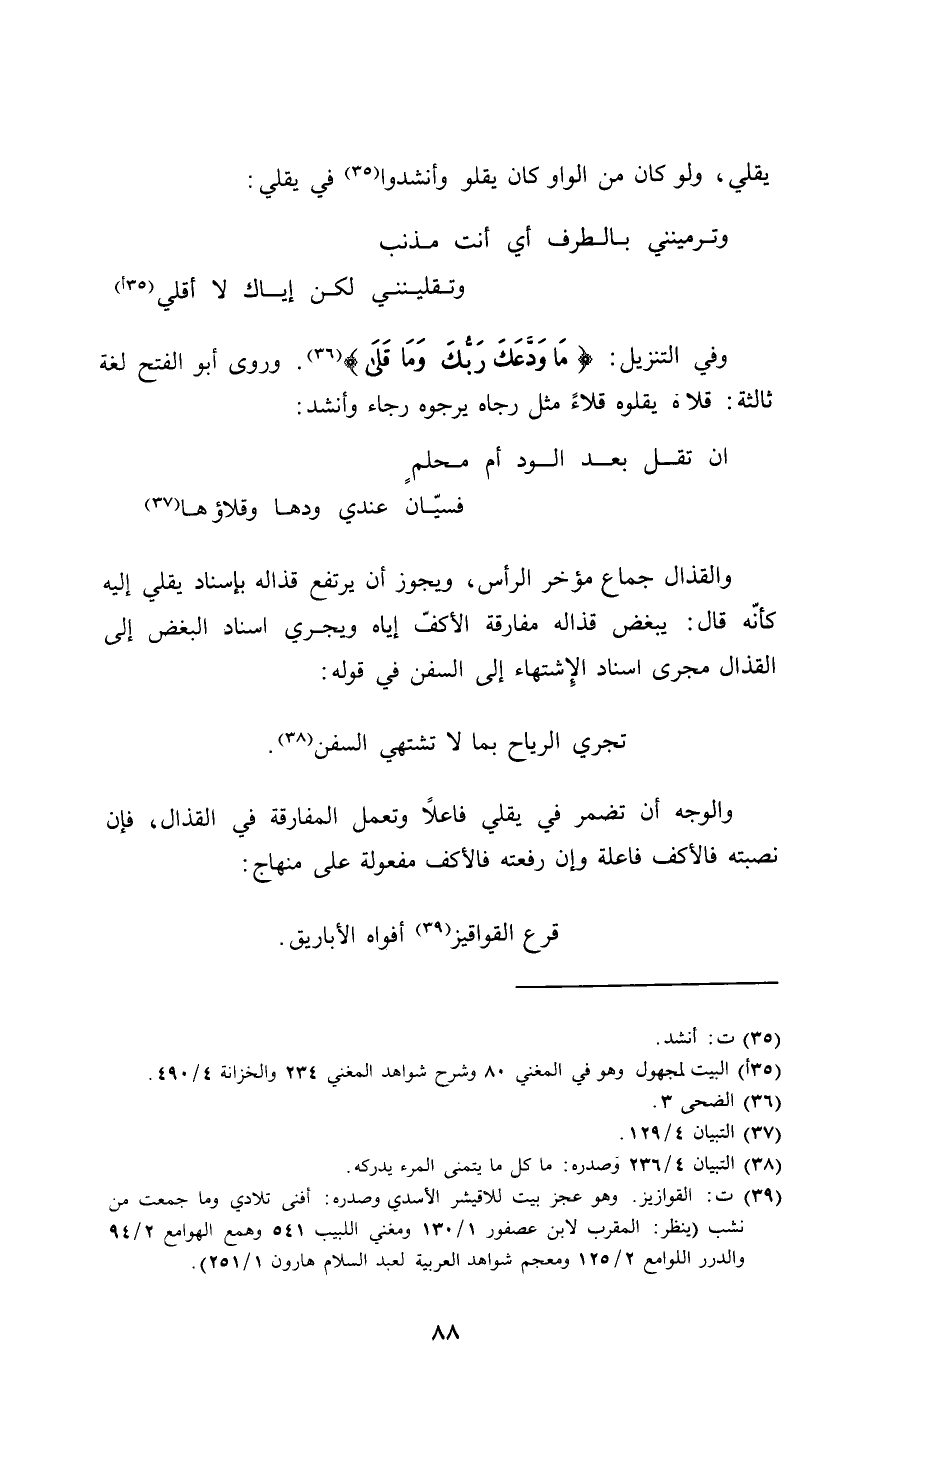 يقلي، ولو كان من الواو كان يقلو وأنشدوا(٣٥) في يقلي:
وترمينني بالطرف أي أنت مذنب
وتقلينني لكن إياك لا أقلي(٣٥أ)
وفي التنزيل: ﴿مَا وَدَّعَكَ رَبُّكَ وَمَا قَلَىٰ﴾(٣٦). وروى أبو الفتح لغة
ثالثة: قلاه يقلوه قلاءً مثل رجاه يرجوه رجاء وأنشد:
ان تقل بعد الود أم محلمٍ
فسيّان عندي ودها وقلاؤها(٣٧)
والقذال جماع مؤخر الرأس، ويجوز أن يرتفع قذاله بإسناد يقلي إليه
كأنّه قال: يبغض قذاله مفارقة الأكفّ إياه ويجري اسناد البغض إلى
القذال مجرى اسناد الإشتهاء إلى السفن في قوله:
تجري الرياح بما لا تشتهي السفن(٣٨).
والوجه أن تضمر في يقلي فاعلاً وتعمل المفارقة في القذال، فإن
نصبته فالأكف فاعلة وإن رفعته فالأكف مفعولة على منهاج:
قرع القواقيز(٣٩) أفواه الأباريق.
(٣٥) ت: أنشد.
(٣٥أ) البيت لمجهول وهو في المغني ٨٠ وشرح شواهد المغني ٢٣٤ والخزانة ٤/٤٩٠.
(٣٦) الضحى ٣.
(٣٧) التبيان ٤/١٢٩.
(٣٨) التبيان ٤/٢٣٦ وصدره: ما كل ما يتمنى المرء يدركه.
(٣٩) ت: القوازيز. وهو عجز بيت للاقيشر الأسدي وصدره: أفنى تلادي وما جمعت من
نشب (ينظر: المقرب لابن عصفور ١/١٣٠ ومغني اللبيب ٥٤١ وهمع الهوامع ٢/٩٤
والدرر اللوامع ٢/١٢٥ ومعجم شواهد العربية لعبد السلام هارون ١/٢٥١).
٨٨